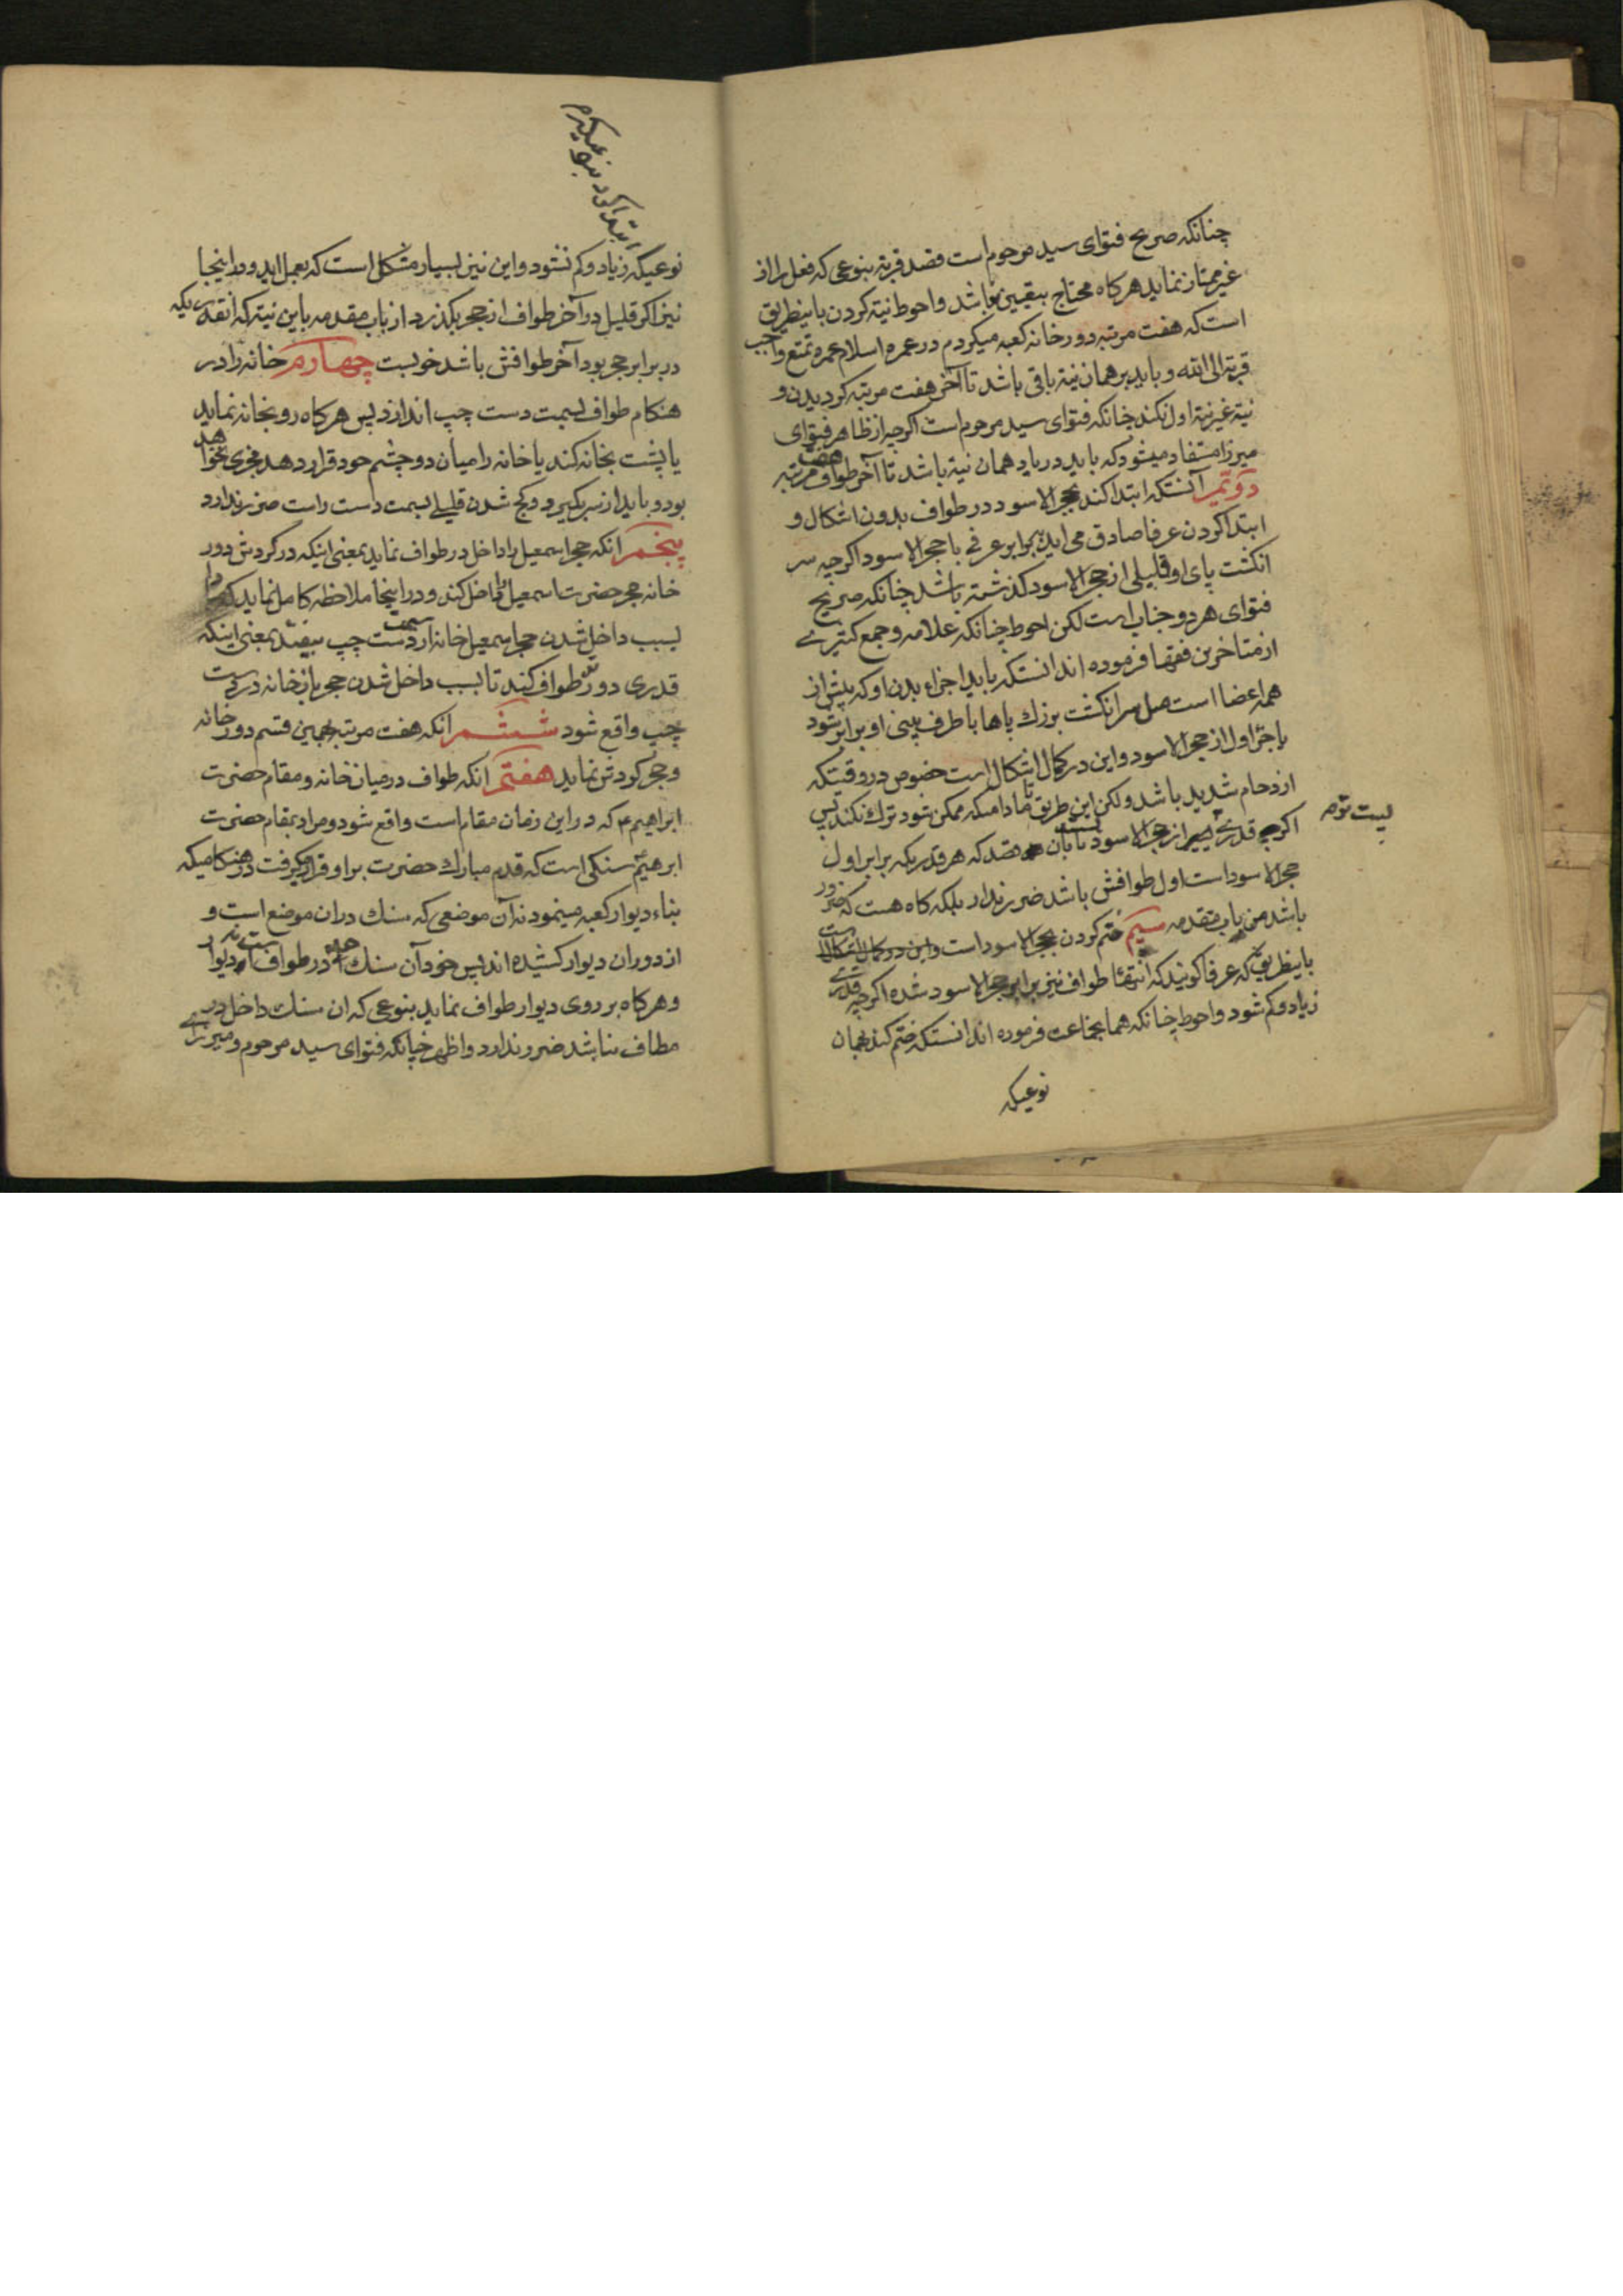 چنانکه صریح فتوای سید مرحوم است قصد قربة بنوعی که فعل را از
غیر ممتاز نماید هر کاه محتاج بتعیین باشد واحوط نیة کردن باینطریق
است که هفت مرتبه دور خانه کعبه میکردم در عمره اسلام عمره تمتع واجب
قربة الی الله و باید بر همان نیة باقی باشد تا آخر هفت مرتبه کردیدن و
نیة غیر نیة اول نکند چنانکه فتوای سید مرحوم است اکرچه از ظاهر فتوای
میرزا مستفاد میشود که باید در یاد همان نیة باشد تا آخر طواف هفت مرتبه
دویم آنستکه ابتدا کند بحجر الاسود در طواف بدون اشکال و
ابتدا کردن عرفا صادق می اید برابر عرفی با حجر الاسود اکرچه سر
انکشت پای او قلیلی از حجر الاسود کذشته باشد چنانکه صریح
فتوای هر دو جناب است لکن احوط چنانکه علامه و جمع کثیری
از متاخرین فقها فرموده اند انستکه باید اجزاء بدن او که پیش از
همه اعضا است مثل سر انکشت بزرك پاها یا طرف بینی او برابر شود
با جزء اول از حجر الاسود و این در کمال اشکال است خصوص در وقتیکه
ازدحام شدید باشد ولکن این طریق تا مادامیکه ممکن شود ترك نکند پس
اکر قدری پیش از حجر الاسود بقصد که هر قدریکه برابر اول
حجر الاسود است اول طوافش باشد ضرر ندارد بلکه کاه هست که ضرور
باشد من باب مقدمه سیم ختم کردن بحجر الاسود است واین در کمال اشکال است
باینطریق که عرفا کویند که انتهاء طواف نیز برابر حجر الاسود شده اکرچه قدری
زیاد و کم شود واحوط چنانکه همانجماعت فرموده اند انستکه ختم کند بهمان
نوعیکه
نوعیکه زیاد و کم نشود واین نیز بسیار مشکل است که بعمل اید و در اینجا
نیز اکر قلیل در آخر طواف از حجر بکذرد از باب مقدمه باین نیة که انقدریکه
در برابر حجر بود آخر طوافش باشد خوبست چهارم خانه را در
هنکام طواف بسمت دست چپ اندازد پس هر کاه رو بخانه نماید
یا پشت بخانه کند یا خانه را میان دو چشم خود قرار دهد مجزی نخواهد
بود و باید از سر بکیرد و کج شدن قلیلی بسمت دست راست ضرر ندارد
پنجم انکه حجر اسمعیل را داخل در طواف نماید بمعنی اینکه در کردش دور
خانه حجر حضرت اسمعیل را داخل کند و در اینجا ملاحظه کامل نماید که مبادا
بسبب داخل شدن حجر اسمعیل خانه از سمت دست چپ بیفتد بمعنی اینکه
قدری دورتر طواف کند تا بسبب داخل شدن حجر باز خانه در دست
چپ واقع شود ششم انکه هفت مرتبه بهمین قسم دور خانه
و حجر کردش نماید هفتم انکه طواف در میان خانه و مقام حضرت
ابراهیم ع که در این زمان مقام است واقع شود و مراد بمقام حضرت
ابرهیم ع سنکی است که قدم مبارك حضرت بر او قرار میکرفت در هنکامیکه
بناء دیوار کعبه مینمود نه آن موضعی که سنك در ان موضع است و
از دوران دیوار کشیده اند پس خود آن سنك در طواف است نه دیوار
و هر کاه بر روی دیوار طواف نماید بنوعی که ان سنك داخل در
مطاف نباشد ضرر ندارد واظهر چنانکه فتوای سید مرحوم و میرزای